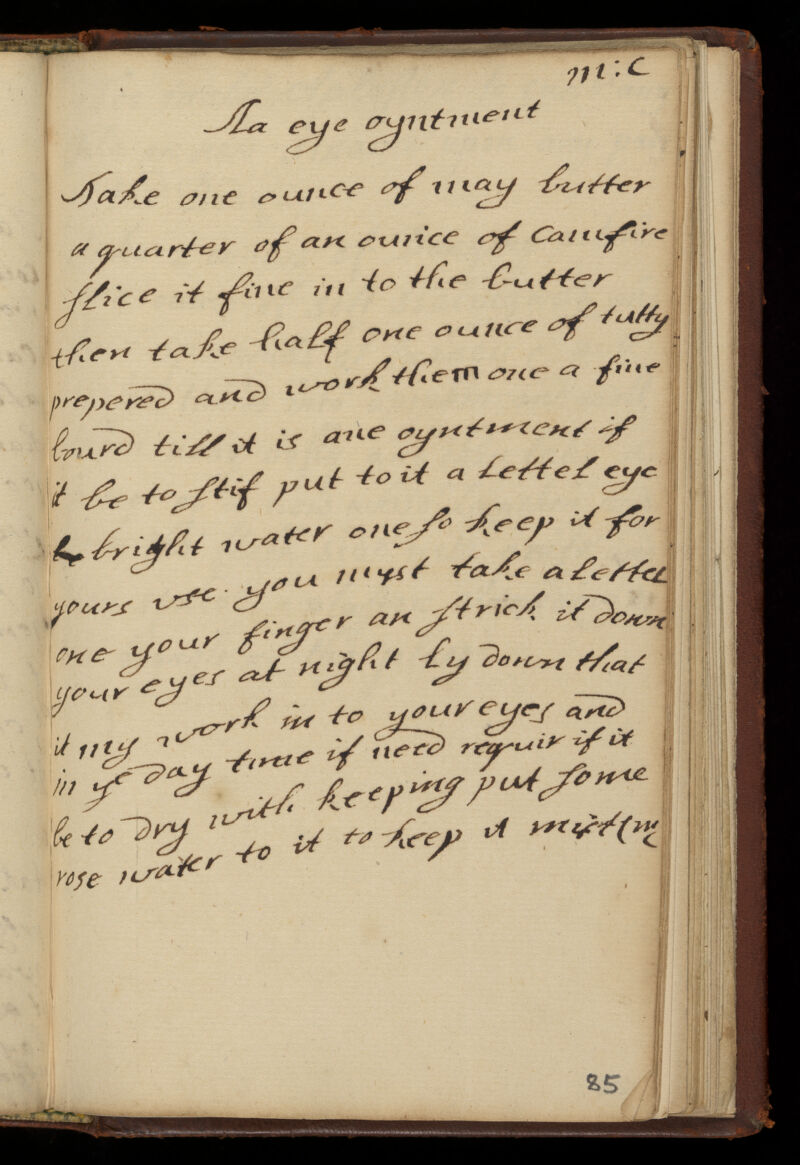 m:C
Aa eye oyntment
Take one ounce of may butter
a quarter of an ounce of Camfire
slice it fine in to the butter
then take half one ounce of tutty
prepered and work them one a fine
bourd till it is ane oyntment if
it be to stif put to it a Lettel eye
bright water one so keep it for
yours vse you myst take a Lettel
one your finger an strick it down
your eyes at night Ly down that
it my work in to your eyes and
in ye day time if need requir if it
be to dry with keeping put some
rose water to it to keep it
85